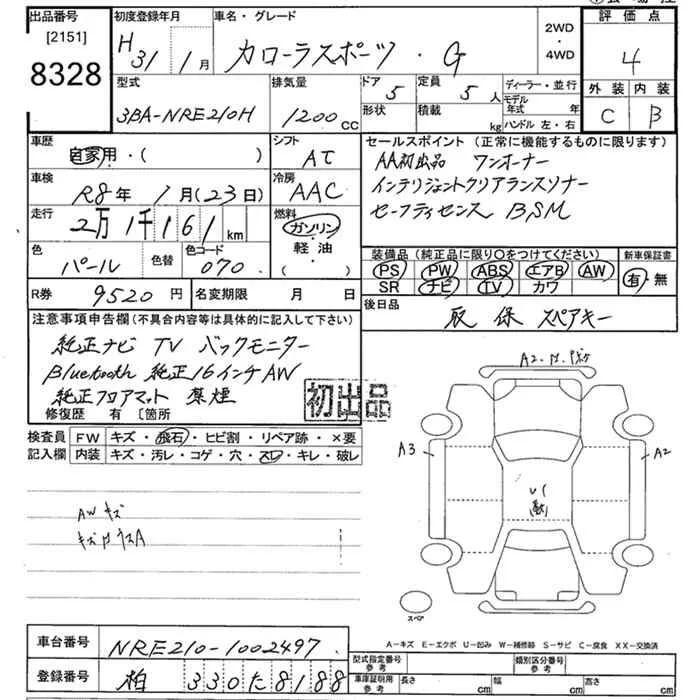 出品番号
[2151]
8328
初度登録年月
H 31 1月
車名・グレード
カローラスポーツ ・ G
2WD
・
4WD
評価点
4
外装 内装
C B
型式
3BA-NRE210H
排気量
1200 CC
ドア 5
形状
定員 5 人
積載 kg
ディーラー・並行
モデル年式 年
ハンドル 左・右
車歴
自家用・( )
シフト
AT
車検
R8年 1月(23日)
冷房
AAC
走行
2万1千161 km
燃料
ガソリン
・
軽・油
( ・ )
色
パール
色替
色コード
070
セールスポイント (正常に機能するものに限ります)
AA初出品 ワンオーナー
インテリジェントクリアランスソナー
セーフティセンス BSM
装備品 (純正品に限り○をつけてください)
PS PW ABS エアB AW
SR ナビ TV カワ
新車保証書
有・無
R券 9520円
名変期限 月 日
後日品
取 保 スペアキー
注意事項申告欄(不具合内容等は具体的に記入して下さい)
純正ナビ TV バックモニター
Bluetooth 純正16インチAW
純正フロアマット 禁煙
修復歴 有 〔箇所
初出品
検査員
記入欄
FW キズ・飛石・ヒビ割・リペア跡・×要
内装 キズ・汚レ・コゲ・穴・スレ・キレ・破レ
AWキズ
A3
A2
スペア
A-キズ E-エクボ U-凹み W-補修跡 S-サビ C-腐食 XX-交換済
車台番号
NRE210-1002497
登録番号
柏 330 た 8188
型式指定番号
参考
類別区分番号
参考
車庫証明用
参考
長さ cm 幅 cm 高さ cm